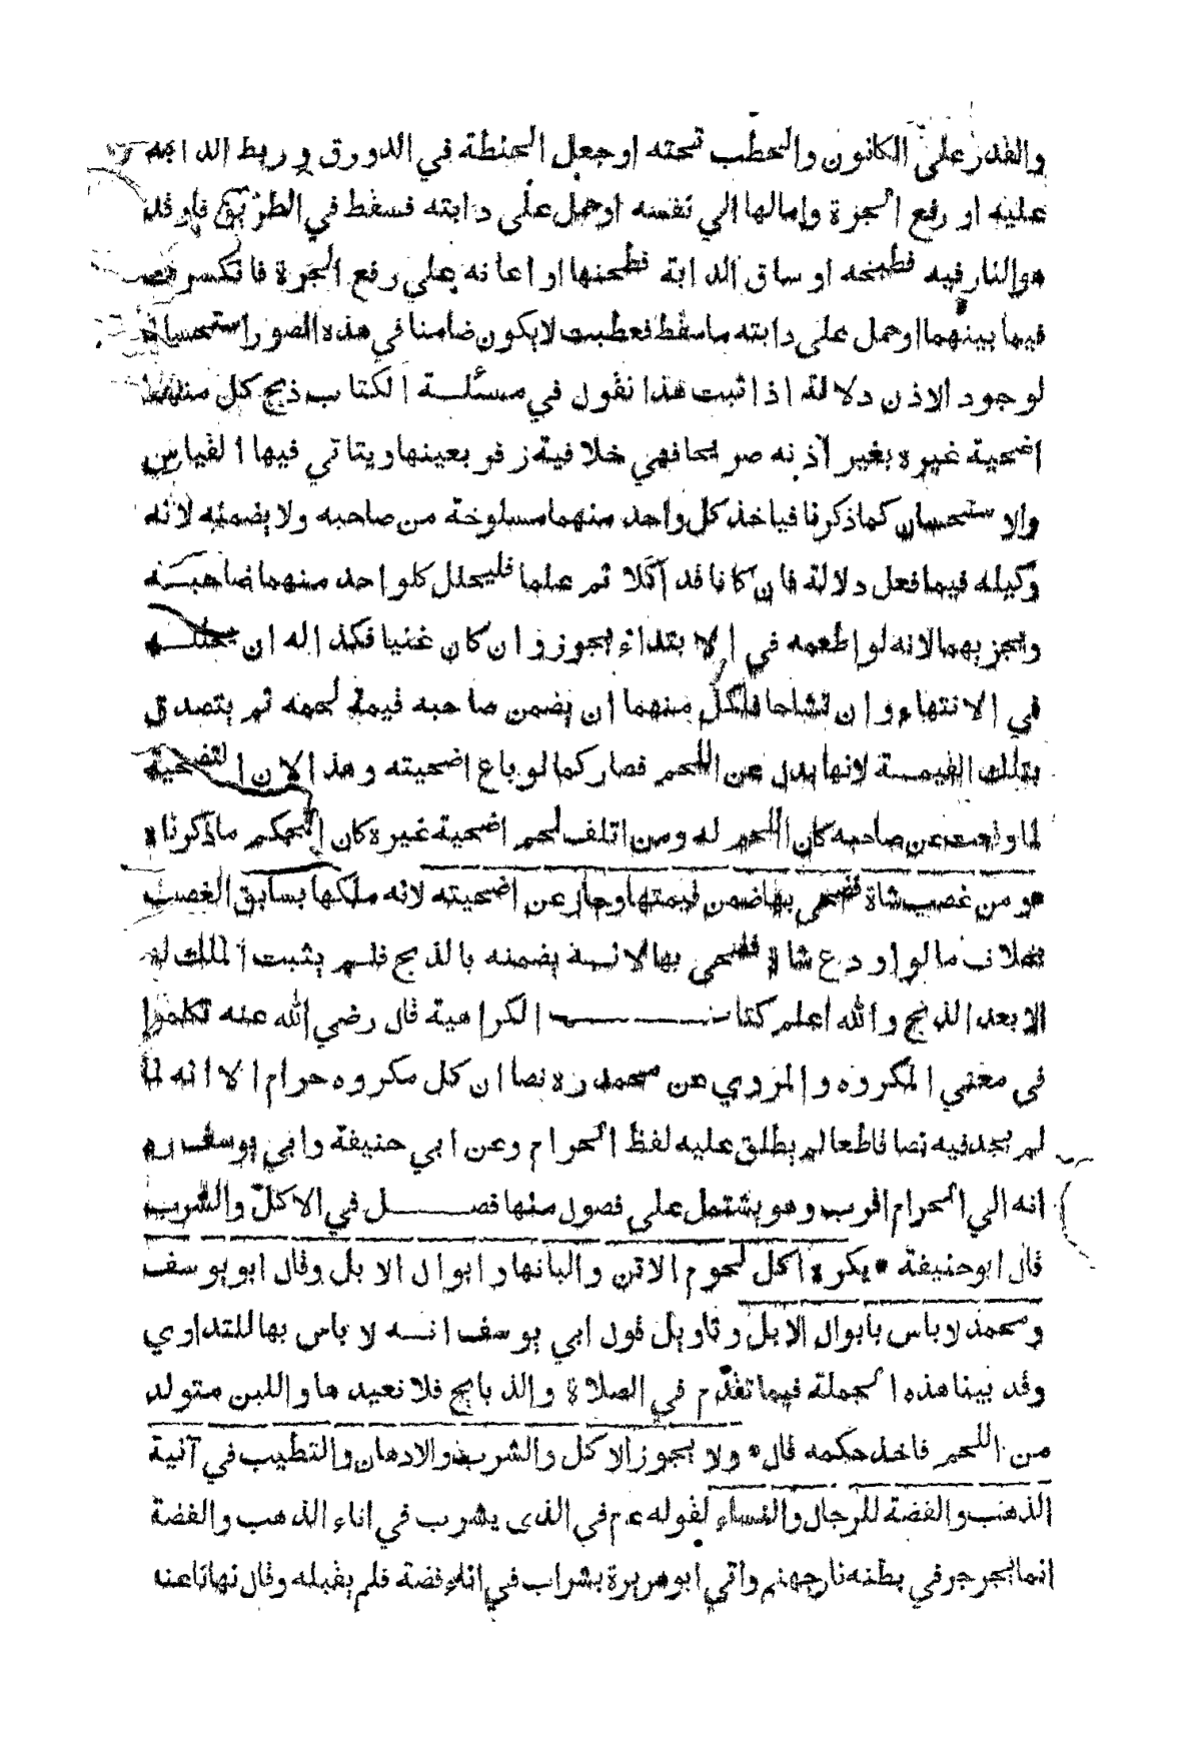 والقدر على الكانون والحطب تحته او جعل الحنطة في الدورق وربط الدابة
عليه او رفع الجرة وامالها الي نفسه او حمل على دابته فسقط في الطريق فاوقد
هو النار فيه فطبخه او ساق الدابة فطحنها او اعانه علي رفع الجرة فانكسرت
فيما بينهما او حمل على دابته ما سقط فعطبت لا يكون ضامنا في هذه الصور استحسانا
لوجود الاذن دلالة اذا ثبت هذا نقول في مسئلة الكتاب ذبح كل منهما
اضحية غيره بغير اذنه صريحا فهي خلافية زفر بعينها ويتاتي فيها القياس
والاستحسان كما ذكرنا فياخذ كل واحد منهما مسلوخة من صاحبه ولا يضمنه لانه
وكيله فيما فعل دلالة فان كانا قد اكلا ثم علما فليحلل كل واحد منهما صاحبه
ويجزيهما لانه لو اطعمه في الابتداء يجوز وان كان غنيا فكذا له ان يحلله
في الانتهاء وان تشاحا فلكل منهما ان يضمن صاحبه قيمة لحمه ثم يتصدق
بتلك القيمة لانها بدل عن اللحم فصار كما لو باع اضحيته وهذا لان التضحية
لما وقعت عن صاحبه كان اللحم له ومن اتلف لحم اضحية غيره كان الحكم ما ذكرناه
ومن غصب شاة فضحى بها ضمن قيمتها وجاز عن اضحيته لانه ملكها بسابق الغصب
بخلاف ما لو اودع شاة فضحى بها لانه يضمنه بالذبح فلم يثبت الملك له
الا بعد الذبح والله اعلم كتاب الكراهية قال رضي الله عنه تكلموا
في معني المكروه والمروي عن محمد ره نصا ان كل مكروه حرام الا انه لما
لم يجد فيه نصا قاطعا لم يطلق عليه لفظ الحرام وعن ابي حنيفة وابي يوسف ره
انه الي الحرام اقرب وهو يشتمل على فصول منها فصل في الاكل والشرب
قال ابو حنيفة * يكره اكل لحوم الاتن والبانها وابوال الابل وقال ابو يوسف
ومحمد لا باس بابوال الابل وتاويل قول ابي يوسف انه لا باس بها للتداوي
وقد بينا هذه الجملة فيما تقدم في الصلاة والذبايح فلا نعيدها واللبن متولد
من اللحم فاخذ حكمه قال * ولا يجوز الاكل والشرب والادهان والتطيب في آنية
الذهب والفضة للرجال والنساء لقوله عم في الذى يشرب في اناء الذهب والفضة
انما يجرجر في بطنه نار جهنم واتي ابو هريرة بشراب في اناء فضة فلم يقبله وقال نهانا عنه